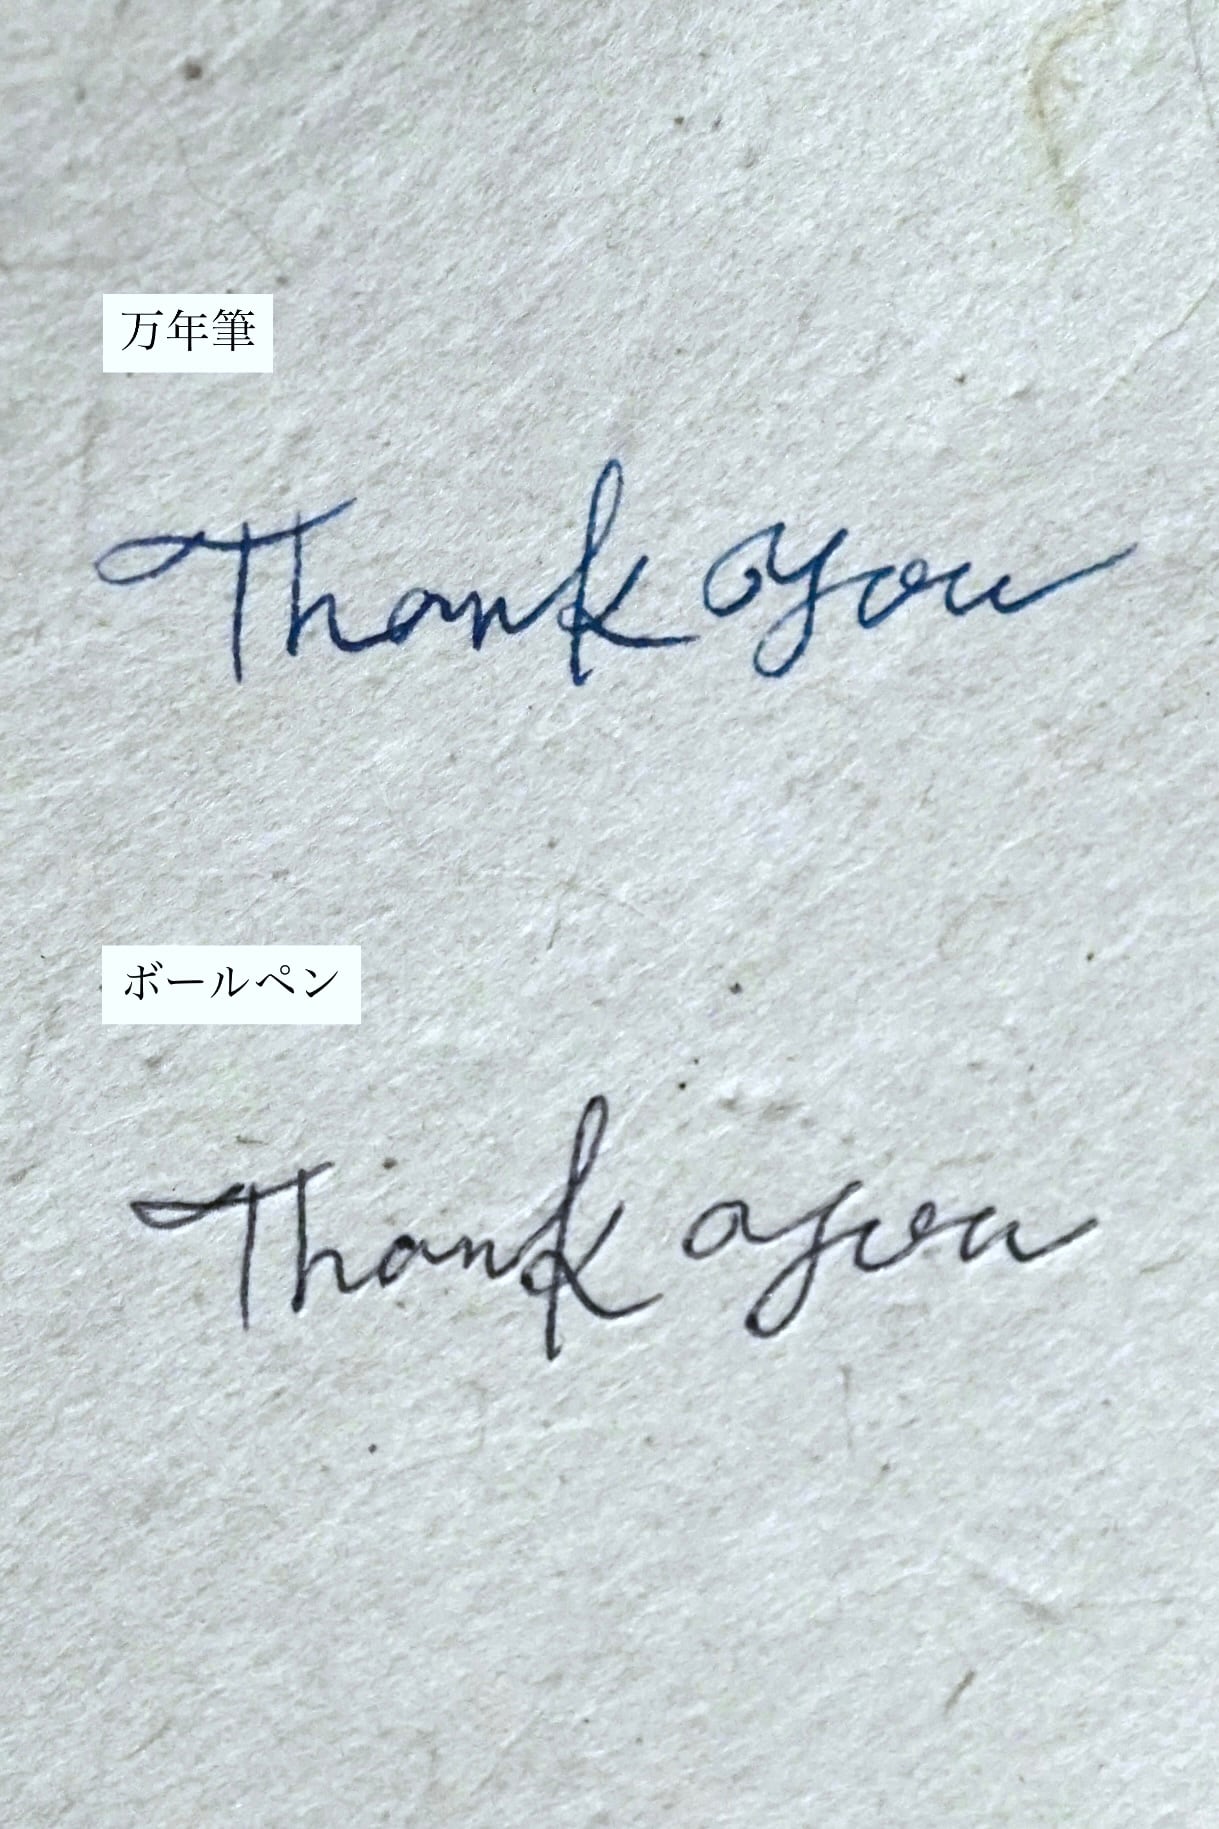 万年筆
Thank you
ボールペン
Thank you